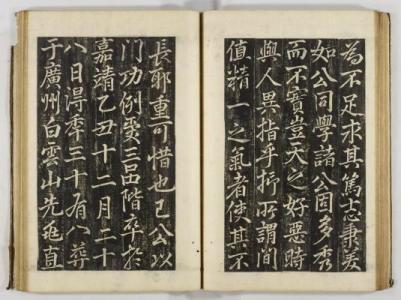 為不足求其篤志
如公同學諸公固多秀
而不實豈天之好惡時
與人異指乎抑所謂間
值精一之氣者使其不
長耶重可惜也已公以
門功例受三品階卒於
嘉靖乙丑十二月二十
八日得年三十有八葬
于廣州白雲山先塋直